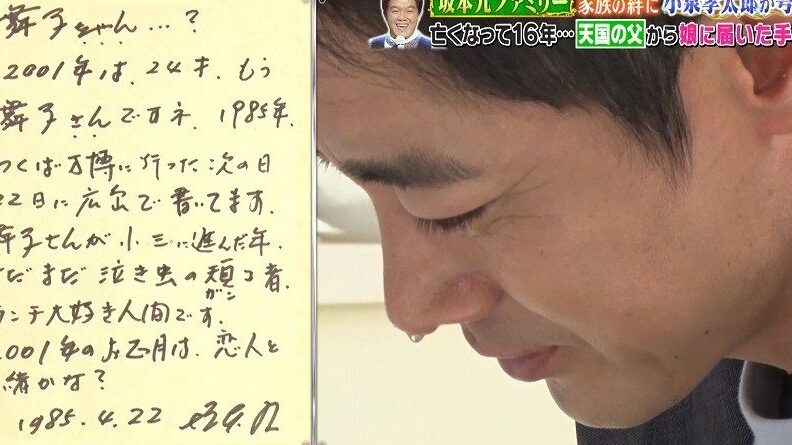 坂本九ファミリー
家族の絆に
小泉孝太郎が号
亡くなって16年…天国の父から娘に届いた手
舞子ちゃん…?
2001年は、24才、もう
舞子さんですネ、1985年、
つくば万博に行った次の日
22日に広島で書いてます。
舞子ちんが小三に進んだ年、
だまだ泣き虫の頑固者、
ガン
ランチ大好き人間です。
2001年のお正月は、恋人と
緒かな?
1985.4.22